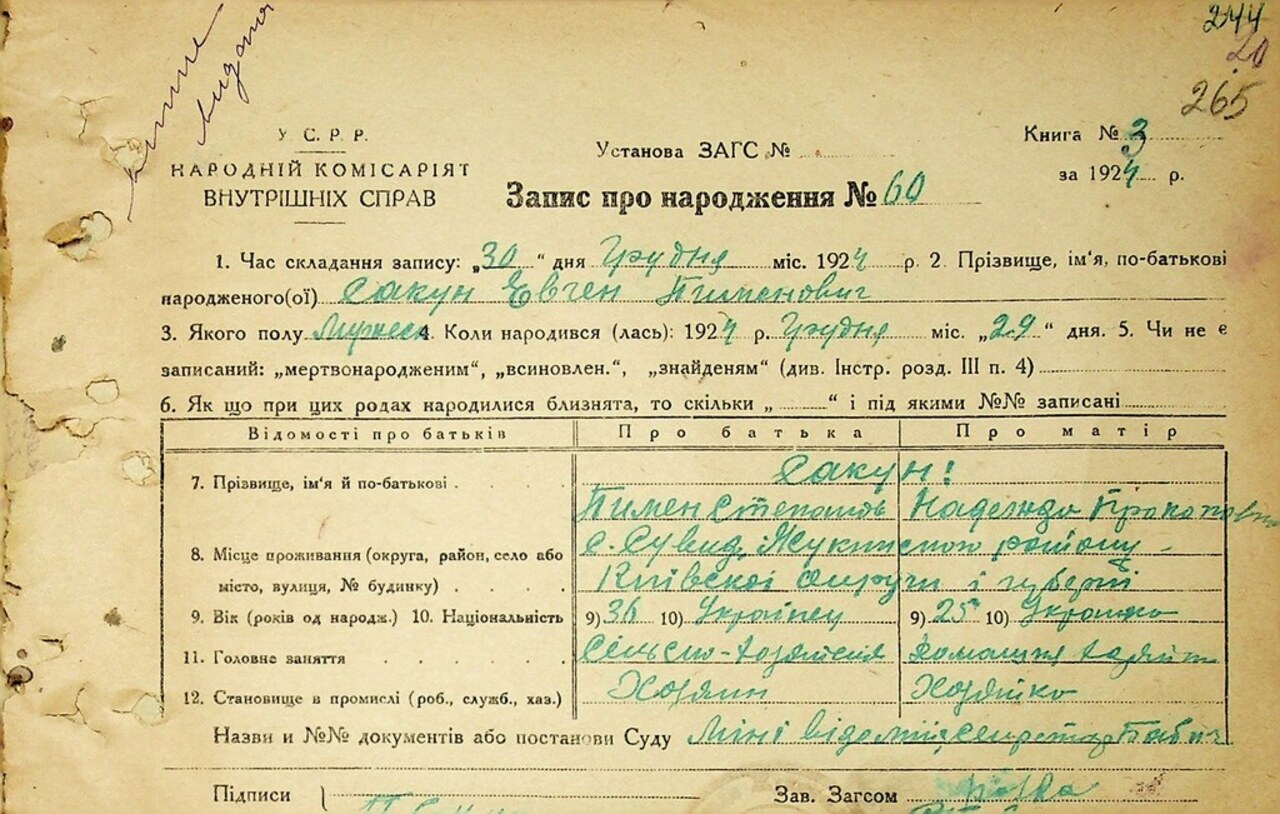 244
20
265
видано
У. С. Р. Р.
НАРОДНІЙ КОМІСАРІЯТ
ВНУТРІШНІХ СПРАВ
Установа ЗАГС №
Книга № 3
за 1924 р.
Запис про народження № 60
1. Час складання запису: „30“ дня Грудня міс. 1924 р. 2. Прізвище, ім'я, по-батькові
народженого(ої) Сакун Евген Пименович
3. Якого полу Мужеск 4. Коли народився (лась): 1924 р. Грудня міс. „29“ дня. 5. Чи не є
записаний: „мертвонародженим“, „всиновлен.“, „знайденям“ (див. Інстр. розд. III п. 4)
6. Як що при цих родах народилися близнята, то скільки „ “ і під якими №№ записані
Відомості про батьків Про батька Про матір
7. Прізвище, ім'я й по-батькові Сакун!
Пимен Степанов Надежда Прокоповна
8. Місце проживання (округа, район, село або с. Сувид, Жукинского району -
місто, вулиця, № будинку) Київскої округи і губерні
9. Вік (років од народж.) 10. Національність 9) 36 10) Українец 9) 25 10) Украинка
11. Головне заняття Сельско-хозяйския Домашня хозяйст
12. Становище в промислі (роб., служб., хаз.) Хозяин Хозяйка
Назви и №№ документів або постанови Суду Міні відомий
Підписи
Зав. Загсом